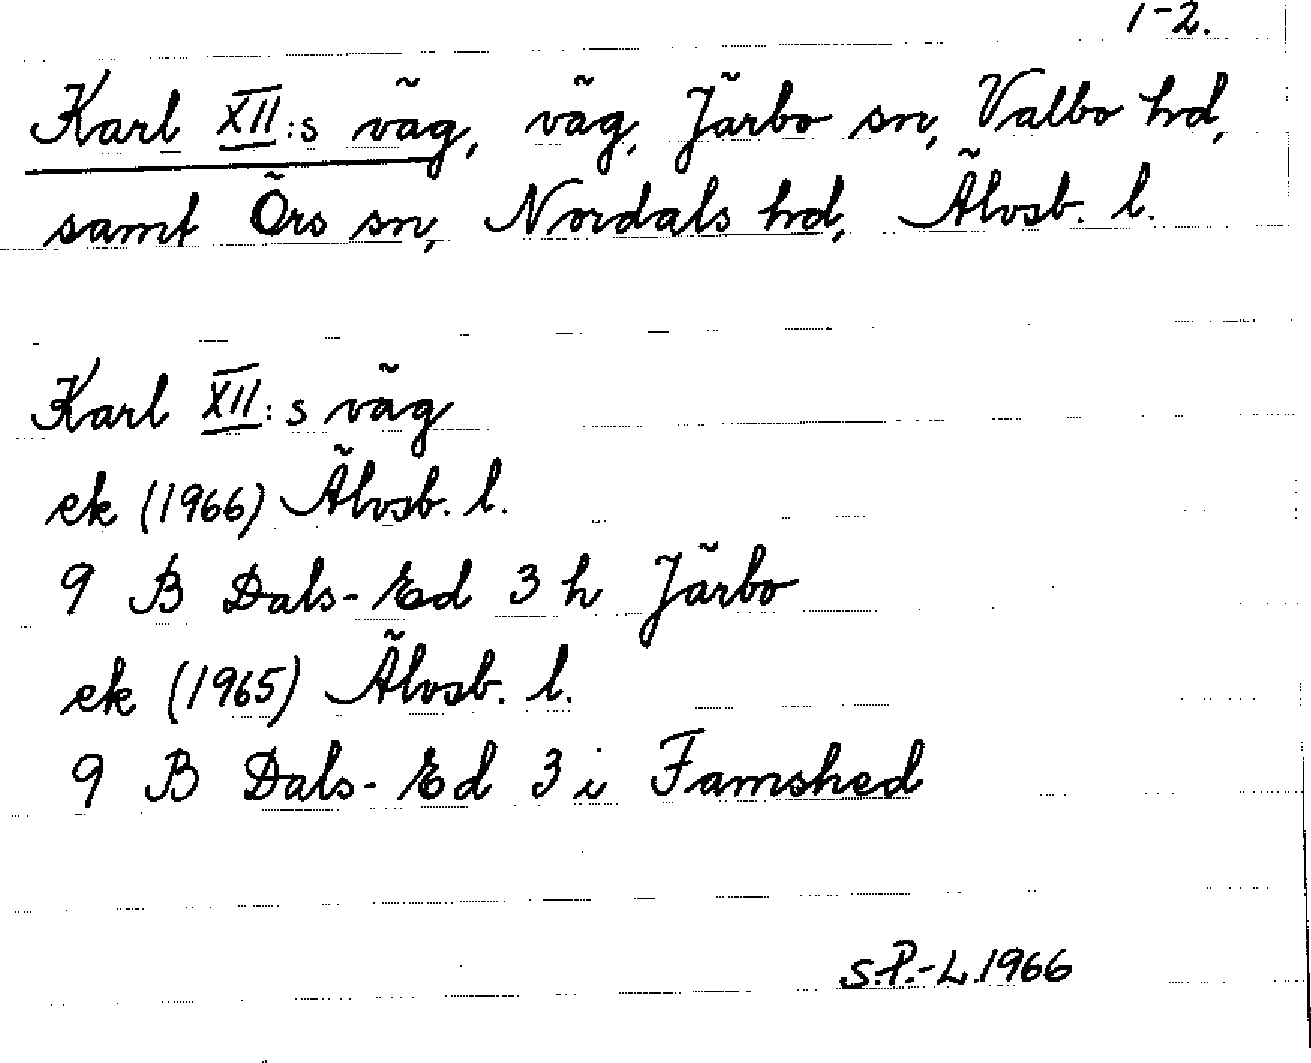 1-2.
Karl XII:s väg, väg, Järbo sn, Valbo hd,
samt Örs sn, Nordals hd, Älvsb. l.
Karl XII:s väg
ek (1966) Älvsb. l.
9 B Dals-Ed 3 h Järbo
ek (1965) Älvsb. l.
9 B Dals-Ed 3 i Famshed
S.P.-L.1966